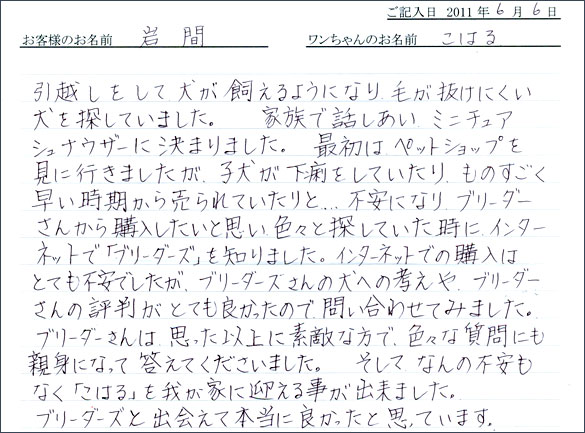 ご記入日 2011年6月6日
お客様のお名前 岩間 ワンちゃんのお名前 こはる
引越しをして犬が飼えるようになり、毛が抜けにくい
犬を探していました。 家族で話しあい ミニチュア
シュナウザーに決まりました。 最初は ペットショップを
見に行きましたが、子犬が下痢をしていたり、ものすごく
早い時期から売られていたりと… 不安になり、ブリーダー
さんから購入したいと思い 色々と探していた時に インター
ネットで「ブリーダーズ」を知りました。インターネットでの購入は
とても不安でしたが、ブリーダーズさんの犬への考えや、ブリーダー
さんの評判が とても良かったので 問い合わせてみました。
ブリーダーさんは 思った以上に素敵な方で、色々な質問にも
親身になって 答えてくださいました。 そして なんの不安も
なく「こはる」を我が家に迎える事が出来ました。
ブリーダーズと出会えて本当に良かったと思っています。